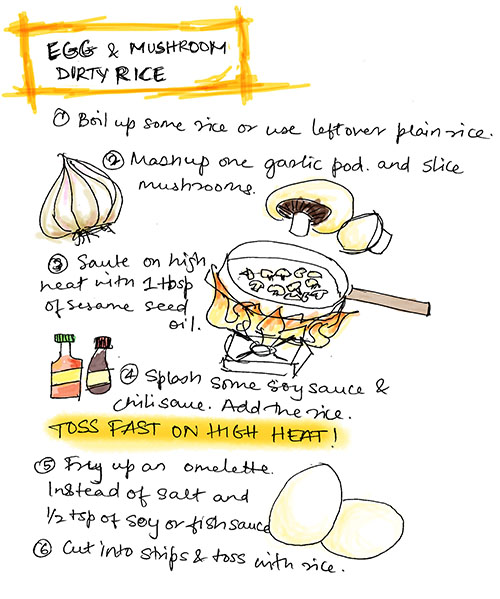 EGG & MUSHROOM
DIRTY RICE
① Boil up some rice or use leftover plain rice.
② Mash up one garlic pod. and slice
mushrooms.
③ Saute on high
heat with 1 tbsp
of sesame seed
oil.
④ Splash some soy sauce &
chili sauce. Add the rice.
TOSS FAST ON HIGH HEAT!
⑤ Fry up an omelette.
Instead of salt and
1/2 tsp of soy or fish sauce
⑥ Cut into strips & toss with rice.